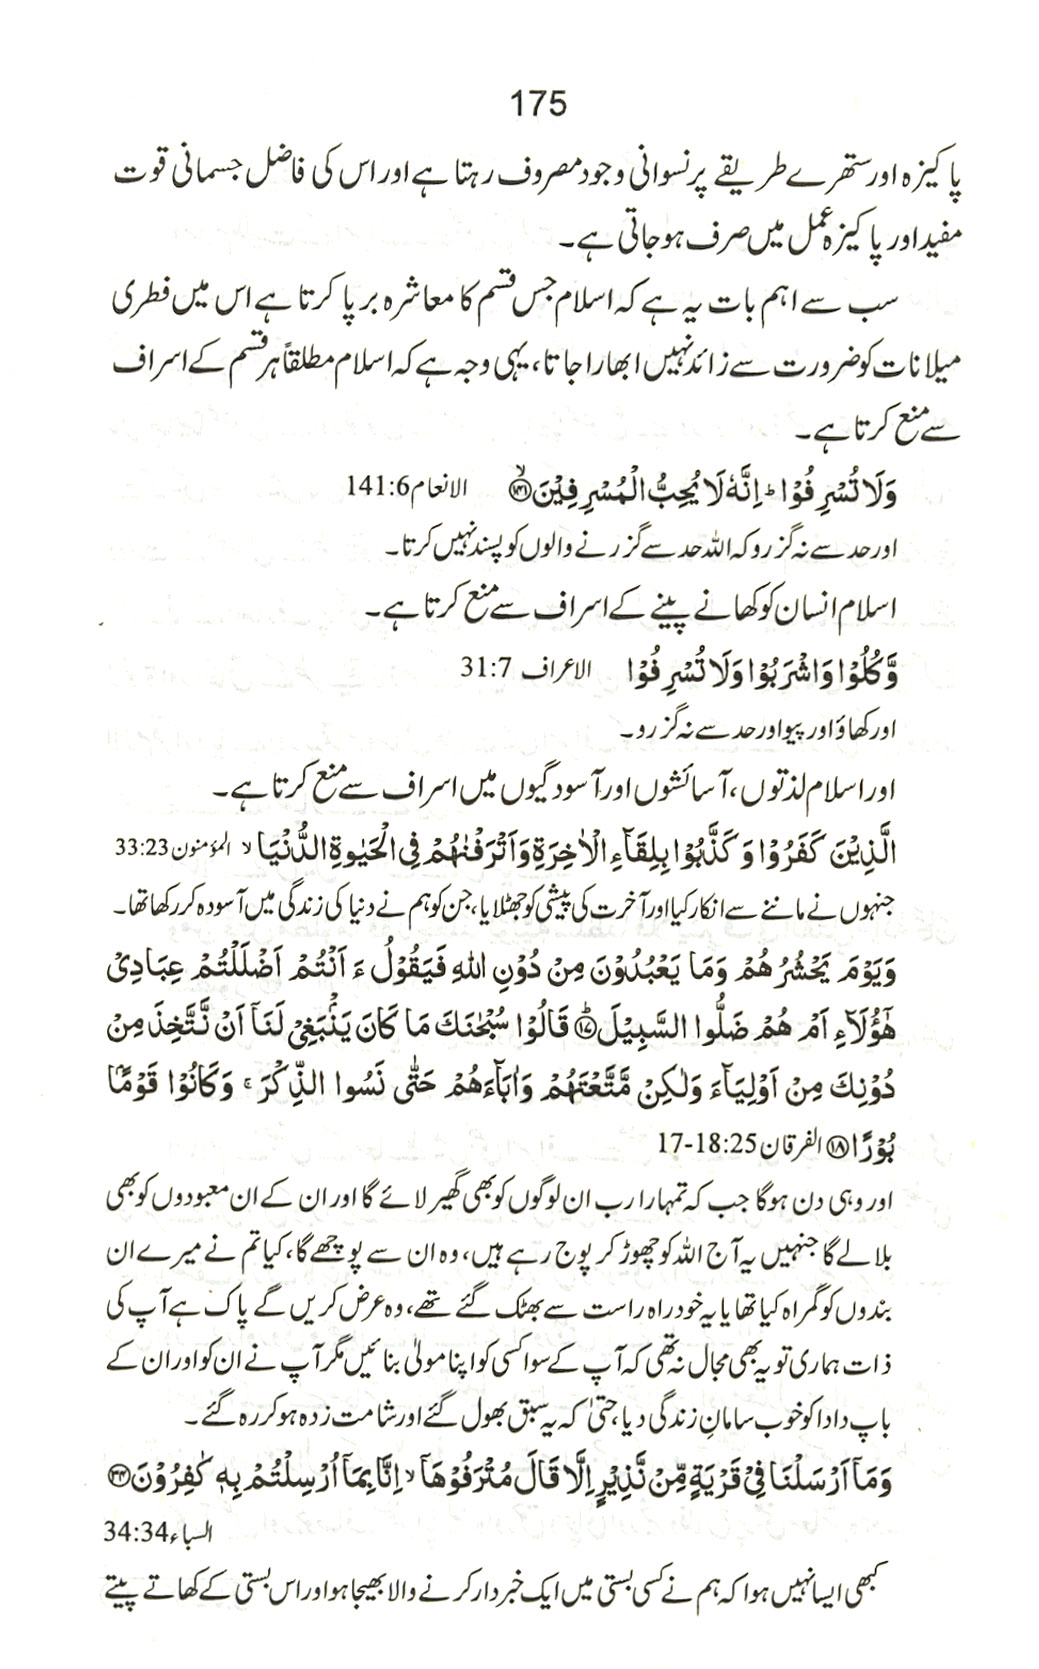 175
پاکیزہ اور ستھرے طریقے پر نسوانی وجود مصروف رہتا ہے اور اس کی فاضل جسمانی قوت
مفید اور پاکیزہ عمل میں صرف ہو جاتی ہے۔
سب سے اہم بات یہ ہے کہ اسلام جس قسم کا معاشرہ برپا کرتا ہے اس میں فطری
میلانات کو ضرورت سے زائد نہیں ابھارا جاتا، یہی وجہ ہے کہ اسلام مطلقاً ہر قسم کے اسراف
سے منع کرتا ہے۔
وَلَا تُسْرِفُوْا ؕ اِنَّهٗ لَا يُحِبُّ الْمُسْرِفِيْنَ ﴿۱۴۱﴾ۙ الانعام 141:6
اور حد سے نہ گزرو کہ اللہ حد سے گزرنے والوں کو پسند نہیں کرتا۔
اسلام انسان کو کھانے پینے کے اسراف سے منع کرتا ہے۔
وَّكُلُوْا وَاشْرَبُوْا وَلَا تُسْرِفُوْا الاعراف 31:7
اور کھاؤ اور پیو اور حد سے نہ گزرو۔
اور اسلام لذتوں، آسائشوں اور آسودگیوں میں اسراف سے منع کرتا ہے۔
الَّذِيْنَ كَفَرُوْا وَ كَذَّبُوْا بِلِقَآءِ الْاٰخِرَةِ وَاَتْرَفْنٰهُمْ فِى الْحَيٰوةِ الدُّنْيَا ۙ المؤمنون 33:23
جنہوں نے ماننے سے انکار کیا اور آخرت کی پیشی کو جھٹلایا، جن کو ہم نے دنیا کی زندگی میں آسودہ کر رکھا تھا۔
وَيَوْمَ يَحْشُرُهُمْ وَمَا يَعْبُدُوْنَ مِنْ دُوْنِ اللهِ فَيَقُوْلُ ءَ اَنْتُمْ اَضْلَلْتُمْ عِبَادِىْ
هٰٓؤُلَآءِ اَمْ هُمْ ضَلُّوا السَّبِيْلَ ﴿۱۷﴾ؕ قَالُوْا سُبْحٰنَكَ مَا كَانَ يَنْۢبَغِىْ لَنَآ اَنْ نَّتَّخِذَ مِنْ
دُوْنِكَ مِنْ اَوْلِيَآءَ وَلٰكِنْ مَّتَّعْتَهُمْ وَاٰبَآءَهُمْ حَتّٰى نَسُوا الذِّكْرَ ۚ وَكَانُوْا قَوْمًۢا
بُوْرًا ﴿۱۸﴾ الفرقان 25:18-17
اور وہی دن ہوگا جب کہ تمہارا رب ان لوگوں کو بھی گھیر لائے گا اور ان کے ان معبودوں کو بھی
بلا لے گا جنہیں یہ آج اللہ کو چھوڑ کر پوج رہے ہیں، وہ ان سے پوچھے گا، کیا تم نے میرے ان
بندوں کو گمراہ کیا تھا یا یہ خود راہ راست سے بھٹک گئے تھے، وہ عرض کریں گے پاک ہے آپ کی
ذات ہماری تو یہ بھی مجال نہ تھی کہ آپ کے سوا کسی کو اپنا مولیٰ بنائیں مگر آپ نے ان کو اور ان کے
باپ دادا کو خوب سامانِ زندگی دیا، حتیٰ کہ یہ سبق بھول گئے اور شامت زدہ ہو کر رہ گئے۔
وَمَآ اَرْسَلْنَا فِىْ قَرْيَةٍ مِّنْ نَّذِيْرٍ اِلَّا قَالَ مُتْرَفُوْهَآ ۙ اِنَّا بِمَآ اُرْسِلْتُمْ بِهٖ كٰفِرُوْنَ ﴿۳۴﴾
السباء 34:34
کبھی ایسا نہیں ہوا کہ ہم نے کسی بستی میں ایک خبردار کرنے والا بھیجا ہو اور اس بستی کے کھاتے پیتے